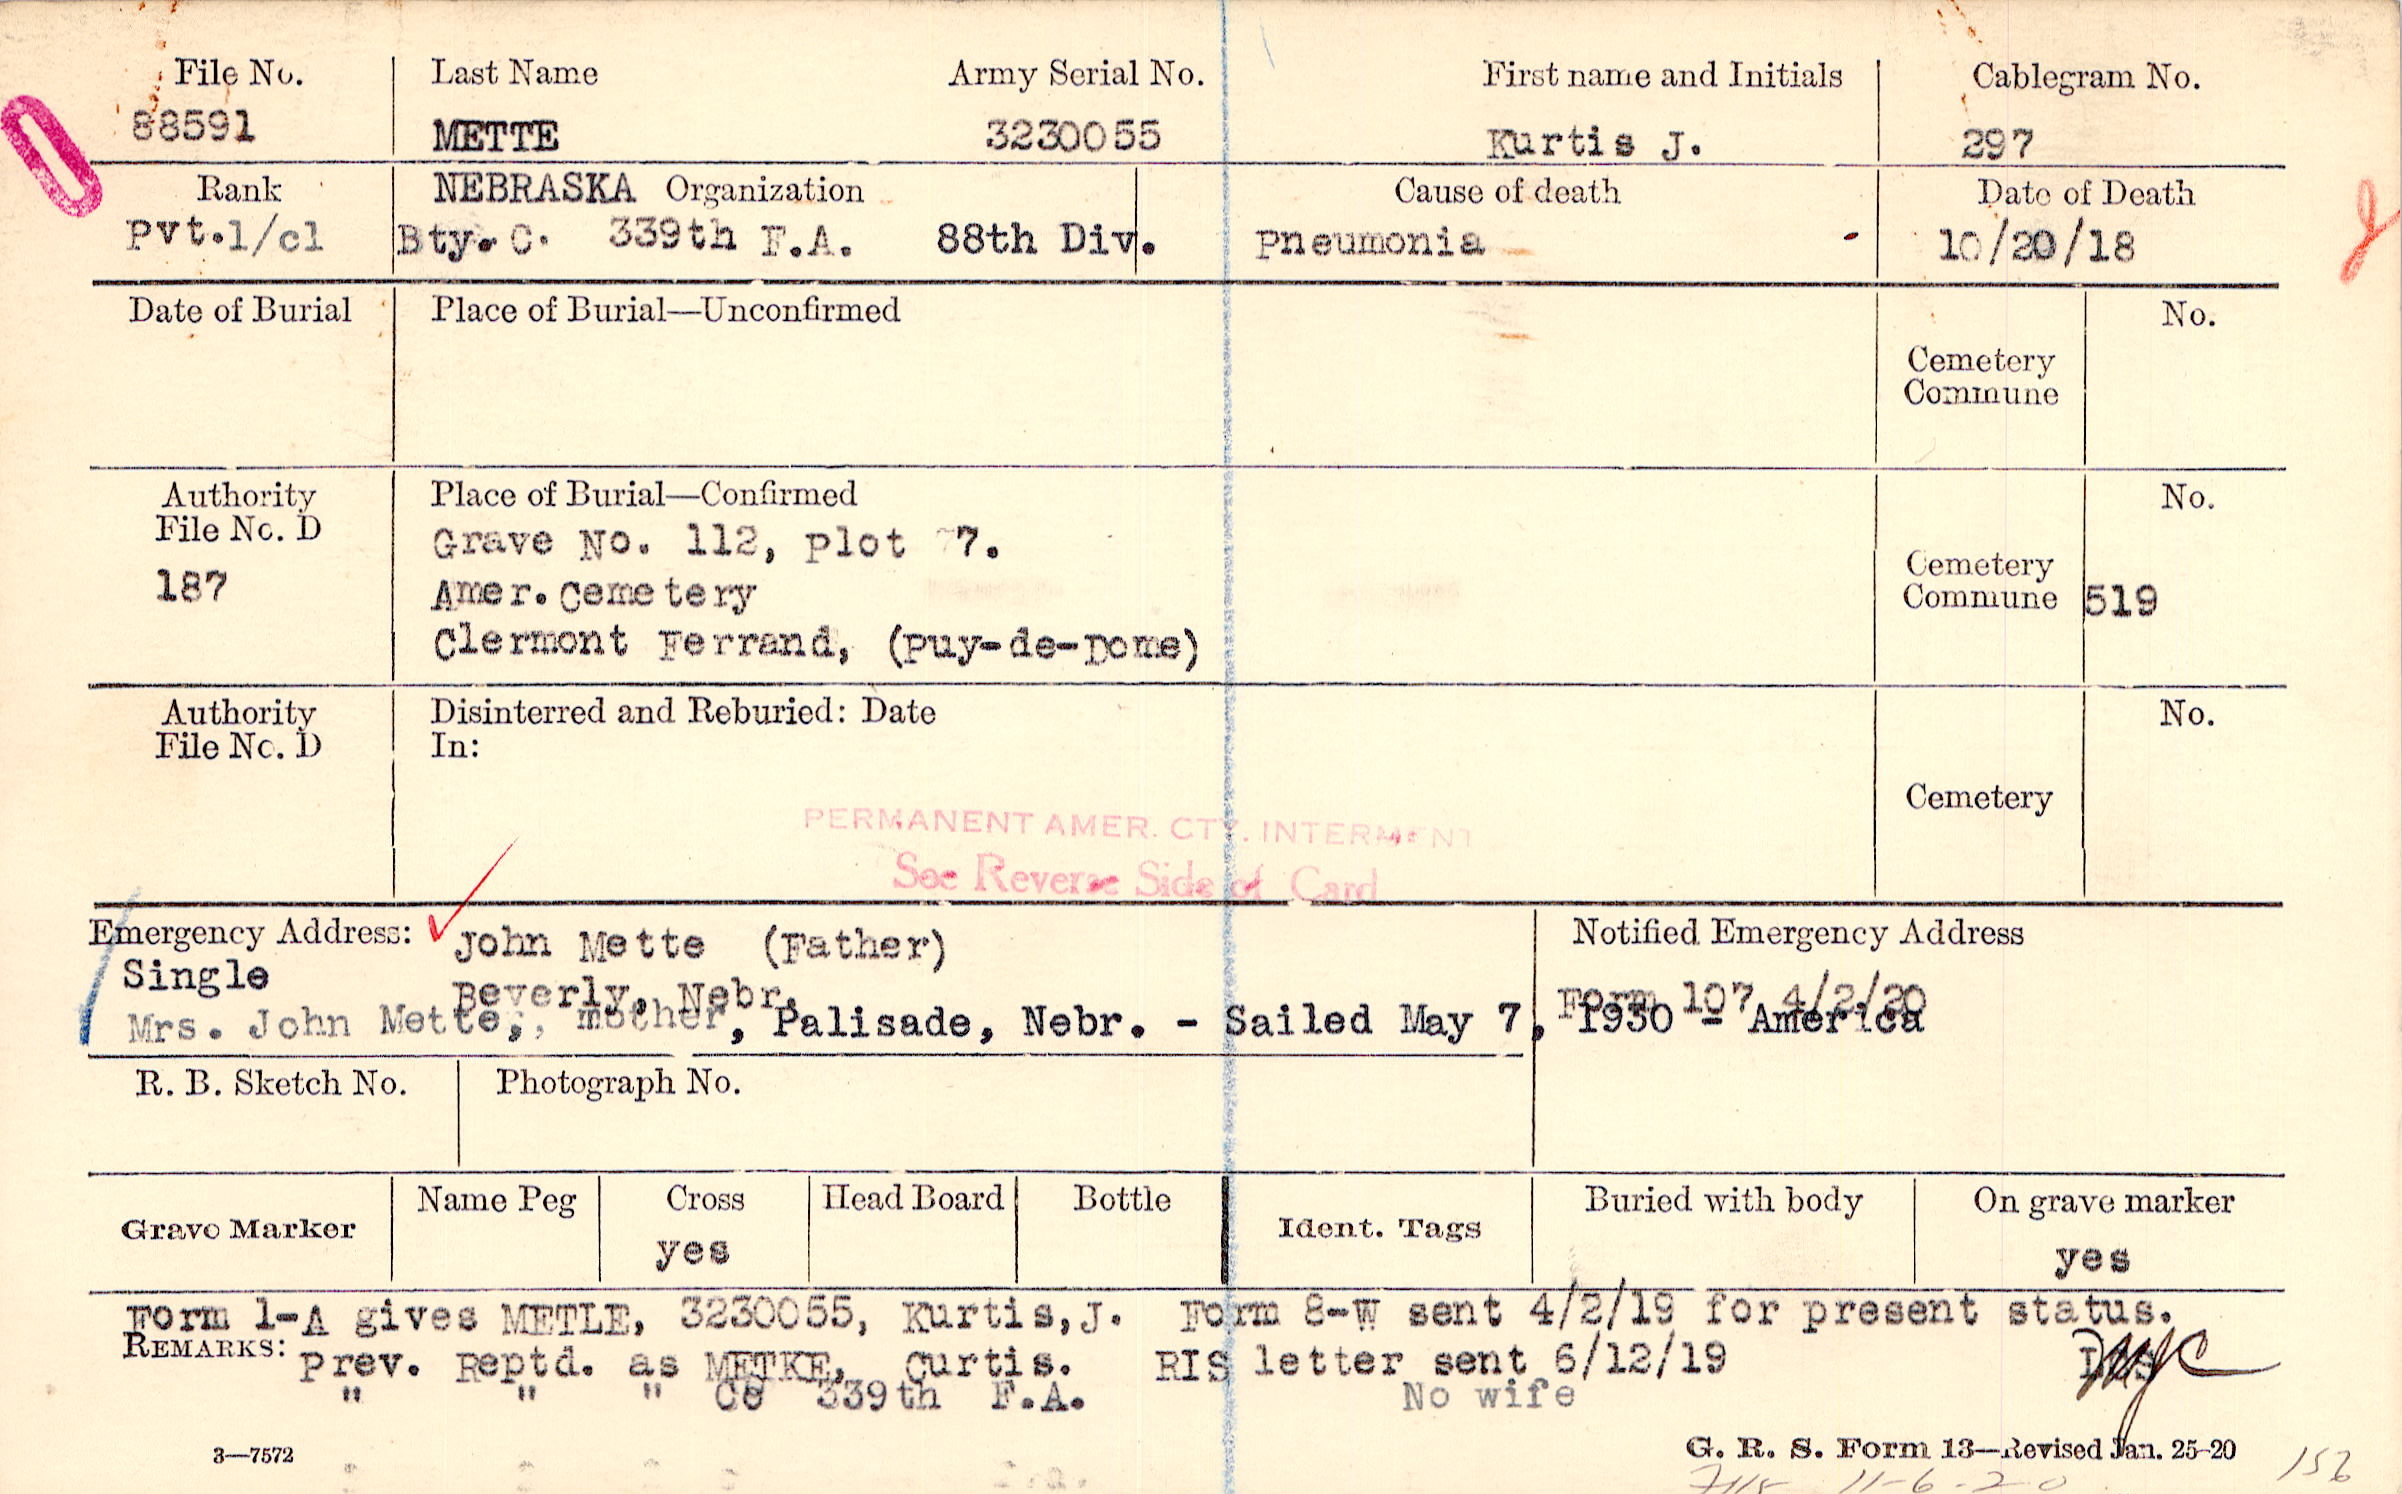 File No. Last Name Army Serial No. First name and Initials Cablegram No.
88591 METTE 3230055 Kurtis J. 297
Rank NEBRASKA Organization Cause of death Date of Death
Pvt.1/cl Bty. C. 339th F.A. 88th Div. Pneumonia 10/20/18
Date of Burial Place of Burial—Unconfirmed No.
Cemetery
Commune
Authority Place of Burial—Confirmed No.
File No. D
Grave No. 112, Plot 7.
187 Amer. Cemetery Cemetery
Commune 519
Clermont Ferrand, (Puy-de-Dome)
Authority Disinterred and Reburied: Date No.
File No. D In:
Cemetery
PERMANENT AMER. CTY. INTERMENT
See Reverse Side of Card
Emergency Address: John Mette (Father) Notified Emergency Address
Single Beverly, Nebr. Form 107 4/2/20
Mrs. John Mette, mother, Palisade, Nebr. - Sailed May 7, 1930 - America
R. B. Sketch No. Photograph No.
Grave Marker Name Peg Cross Head Board Bottle Ident. Tags Buried with body On grave marker
yes yes
Form 1-A gives METLE, 3230055, Kurtis, J. Form 8-W sent 4/2/19 for present status.
REMARKS: Prev. Reptd. as METKE, Curtis. RIS letter sent 6/12/19
" " " Co 339th F.A. No wife
3—7572 G. R. S. Form 13—Revised Jan. 25-20
11-6-20 156